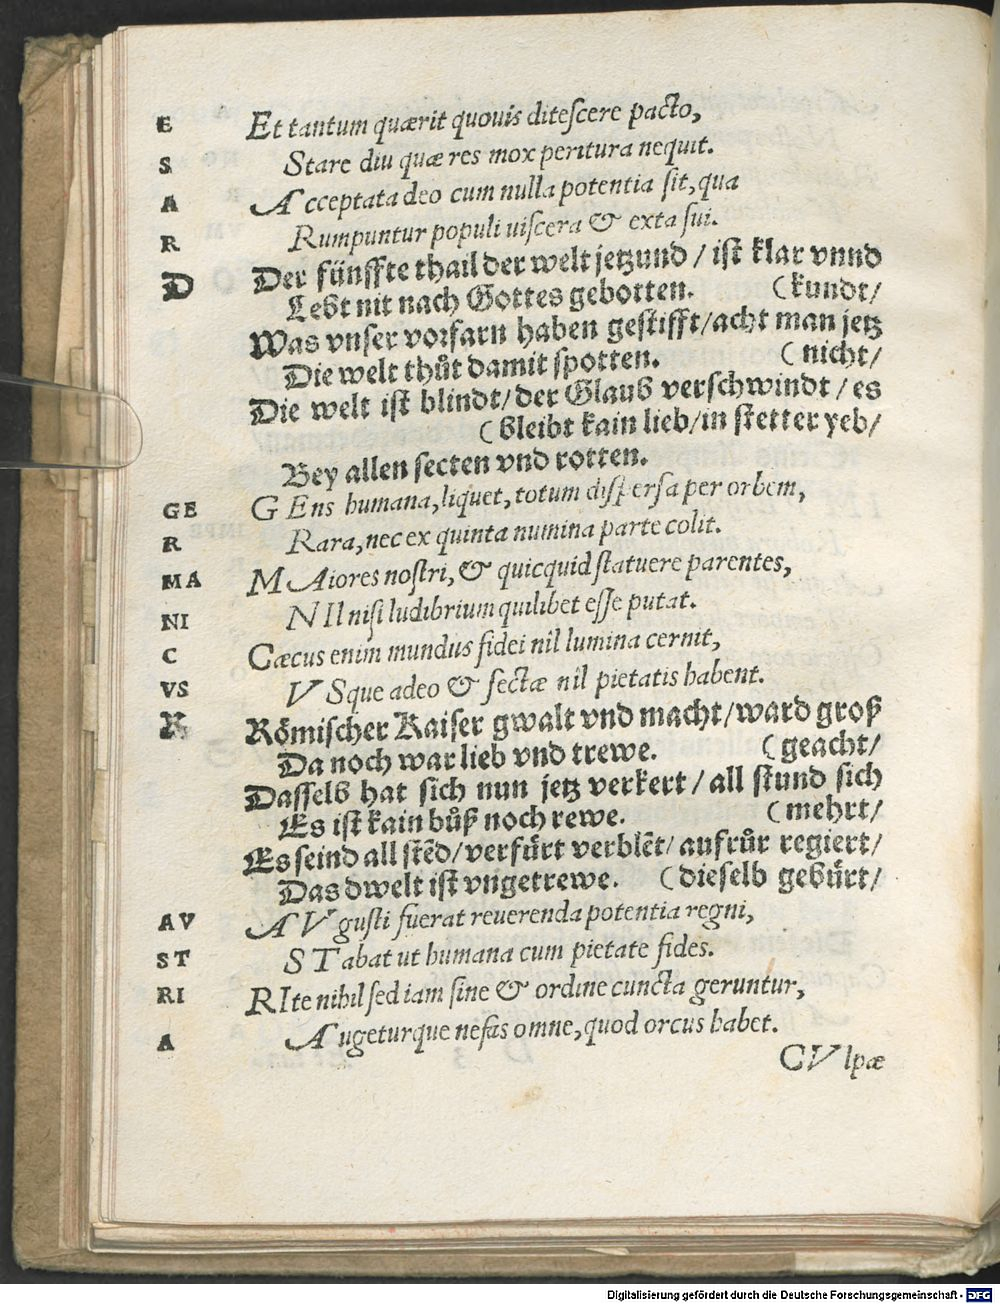 E Et tantum quærit quouis ditescere pacto,
S Stare diu quæ res mox peritura nequit.
A Acceptata deo cum nulla potentia sit, qua
R Rumpuntur populi uiscera & exta sui.
D Der fünffte thail der welt jetzund / ist klar vnnd
Lebt nit nach Gottes gebotten. (kundt/
Was vnser vorfarn haben gestifft/acht man jetz
Die welt thůt damit spotten. (nicht/
Die welt ist blindt/der Glaub verschwindt / es
(bleibt kain lieb/in stetter yeb/
Bey allen secten vnd rotten.
GE GEns humana, liquet, totum dispersa per orbem,
R Rara, nec ex quinta numina parte colit.
MA MAiores nostri, & quicquid statuere parentes,
NI NIl nisi ludibrium quilibet esse putat.
C Cæcus enim mundus fidei nil lumina cernit,
VS VSque adeo & sectæ nil pietatis habent.
R Römischer Kaiser gwalt vnd macht/ward groß
Da noch war lieb vnd trewe. (geacht/
Dasselb hat sich nun jetz verkert / all stund sich
Es ist kain bůß noch rewe. (mehrt/
Es seind all stẽd/verfürt verblẽt/ aufrůr regiert/
Das dwelt ist vngetrewe. (dieselb gebürt/
AV AVgusti fuerat reuerenda potentia regni,
ST STabat ut humana cum pietate fides.
RI RIte nihil sed iam sine & ordine cuncta geruntur,
A Augeturque nefas omne, quod orcus habet.
CVlpæ
Digitalisierung gefördert durch die Deutsche Forschungsgemeinschaft - DFG